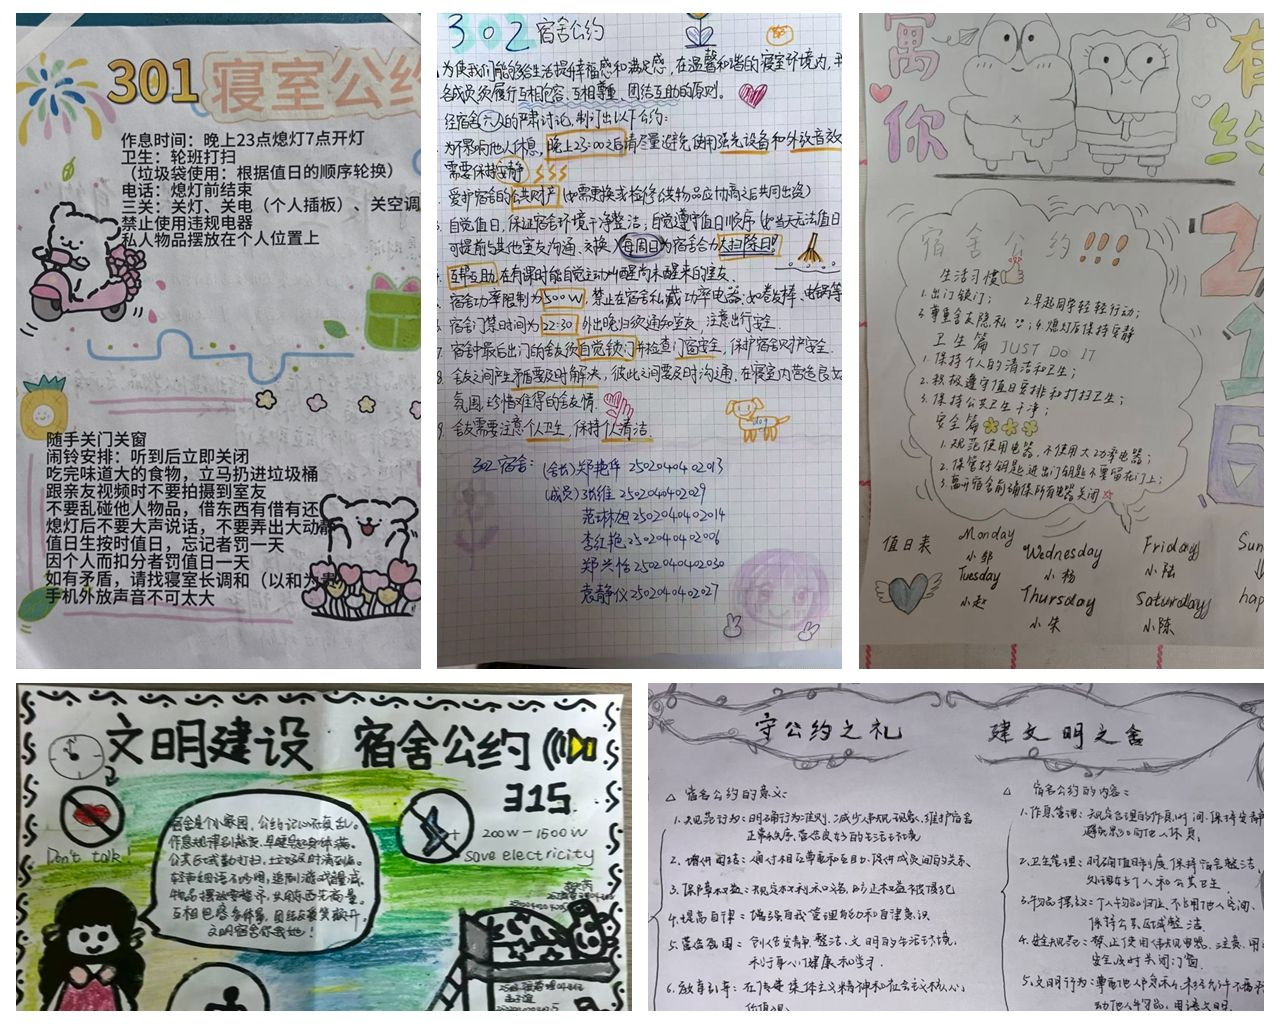 301 寝室公约
作息时间：晚上23点熄灯7点开灯
卫生：轮班打扫
（垃圾袋使用：根据值日的顺序轮换）
电话：熄灯前结束
三关：关灯、关电（个人插板）、关空调
禁止使用违规电器
私人物品摆放在个人位置上
随手关门关窗
闹铃安排：听到后立即关闭
吃完味道大的食物，立马扔进垃圾桶
跟亲友视频时不要拍摄到室友
不要乱碰他人物品，借东西有借有还
熄灯后不要大声说话，不要弄出大动静
值日生按时值日，忘记者罚一天
因个人而扣分者罚值日一天
如有矛盾，请找寝室长调和（以和为贵
手机外放声音不可太大
302 宿舍公约
为使我们能够给生活提升幸福感和满足感，在温馨和谐的寝室环境内，
各成员须履行互相包容、互相尊重、团结互助的原则。
经宿舍六人的严肃讨论，制订出以下公约：
为不影响他人休息，晚上23:00之后请尽量避免使用强光设备和外放音效
需要保持安静
爱护宿舍的公共财产（如需更换或检修公共物品应协商之后共同出资）
自觉值日，保证宿舍环境干净整洁，自觉遵守值日顺序（如当天无法值日
可提前与其他室友沟通、交换）每周日为宿舍合力大扫除日！
互帮互助，在有课时能自觉主动叫醒尚未醒来的室友、
宿舍功率限制为500W，禁止在宿舍私藏大功率电器：如卷发棒、电锅等
6. 宿舍门禁时间为22:30 外出晚归须通知室友，注意出行安全
7. 宿舍中最后出门的舍友须自觉锁门并检查门窗安全，保护宿舍财产安全.
8. 舍友之间产生矛盾要及时解决，彼此之间要及时沟通，在寝室内营造良好
氛围，珍惜难得的舍友情.
9. 舍友需要注意个人卫生，保持个人清洁.
dog
302 宿舍：（舍长）郑艳华 2502040402013
（成员）张维 2502040402029
范琳旭 2502040402014
李红艳 2502040402006
郑兴怡 2502040402030
袁静仪 2502040402027
寓 有
你 约
宿舍公约!!!
216
生活习惯
1. 出门锁门； 2. 早起同学轻轻行动；
3. 尊重舍友隐私；4. 熄灯后保持安静
卫生篇 JUST DO IT
1. 保持个人的清洁和卫生；
2. 积极遵守值日安排和打扫卫生；
3. 保持公共卫生干净；
安全篇
1. 规范使用电器，不使用大功率电器；
2. 保管好钥匙，进出门钥匙不要留在门上；
3. 离开宿舍前确保所有电器关闭
值日表
Monday
小邹
Tuesday
小赵
Wednesday
小杨
Thursday
小朱
Friday
小陆
Saturday
小陈
Sun
hap
文明建设 宿舍公约
315
200W-1500W
save electricity
Don't talk!
宿舍是个小家园，公约记心不复乱。
公共区域勤打扫，垃圾及时清到位。
文明宿舍你我他！
守公约之礼 建文明之舍
△ 宿舍公约的意义：
1. 规范行为：明确行为准则，减少违规现象，维护宿舍
正常秩序，营造良好的生活环境
2. 增进团结：通过相互尊重和互助，促进成员间的关系、
3. 保障权益：规定权利和义务，防止权益被侵犯
4. 提高自律：增强自我管理能力和自律意识
5. 营造氛围：创造安静、整洁、文明的生活环境，
利于身心健康和学习.
6. 教育引导：在传递集体主义精神和社会主义核心
价值观.
△ 宿舍公约的内容：
1. 作息管理：规定合理的作息时间，保持安静
避免影响他人休息.
2. 卫生管理：明确值日制度，保持宿舍整洁、
处理好个人和公共卫生
3. 物品摆放：个人物品归位，不占用他人空间、
保持公共区域整洁.
4. 安全规范：禁止使用违规电器、注意用
安全，及时关闭门窗.
5. 文明行为：尊重他人隐私，未经允许不擅
动他人物品，用语文明